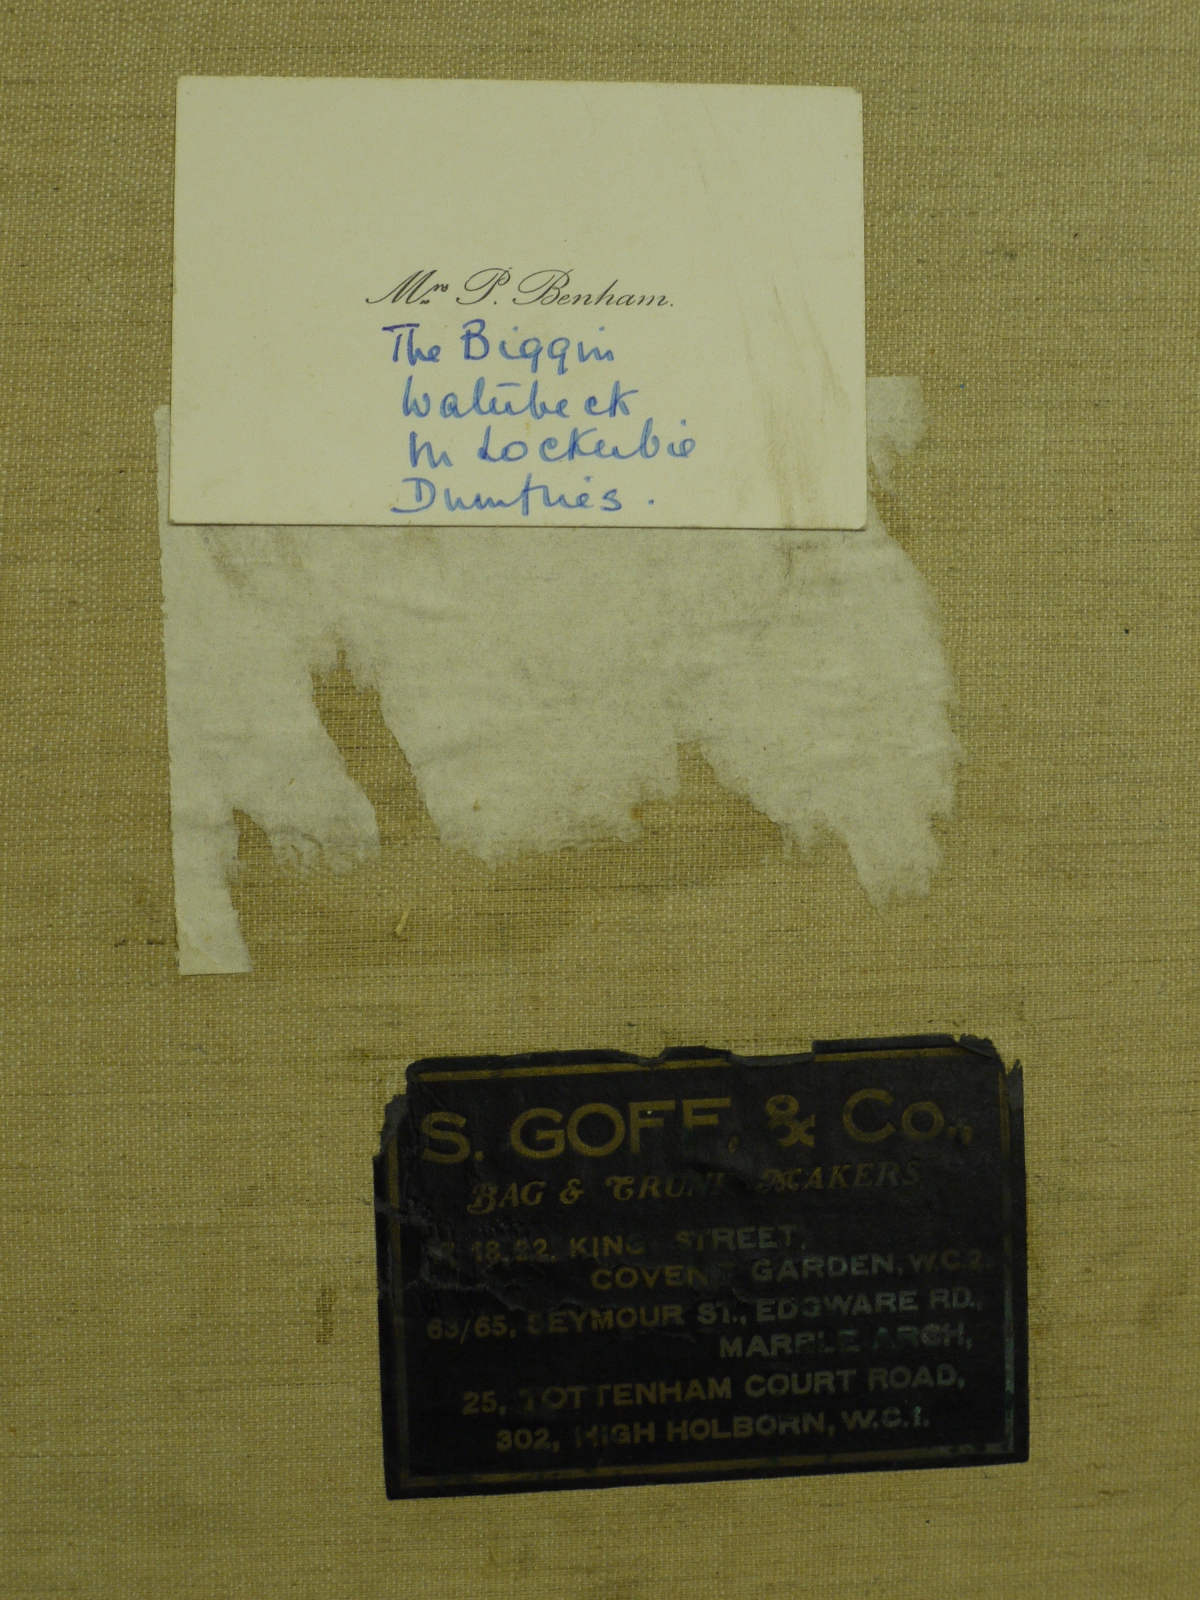 Mrs P. Benham.
The Biggin
Waterbeck
Nr Lockerbie
Dumfries.
S. GOFF, & Co.,
BAG & TRUNK MAKERS,
18, 22, KING STREET,
COVENT GARDEN, W.C.2.
63/65, SEYMOUR ST., EDGWARE RD.,
MARBLE ARCH,
25, TOTTENHAM COURT ROAD,
302, HIGH HOLBORN, W.C.1.